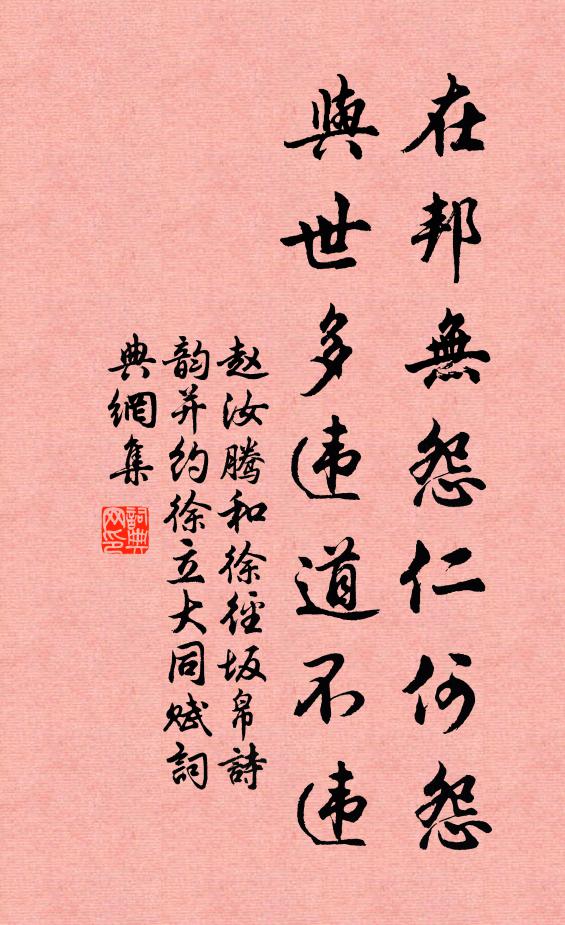 在邦無怨仁何怨
與世多违道不违
赵汝腾和徐径坂帛詩
韵并约徐立大同赋詞
典網集
詞典網印